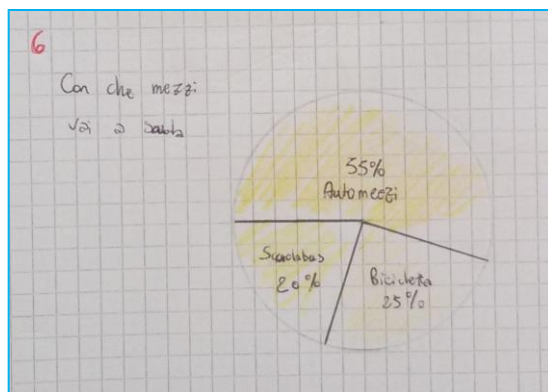 6
Con che mezzi
vai a scuola
55%
Automezzi
Scuolabus
20%
Bicicletta
25%